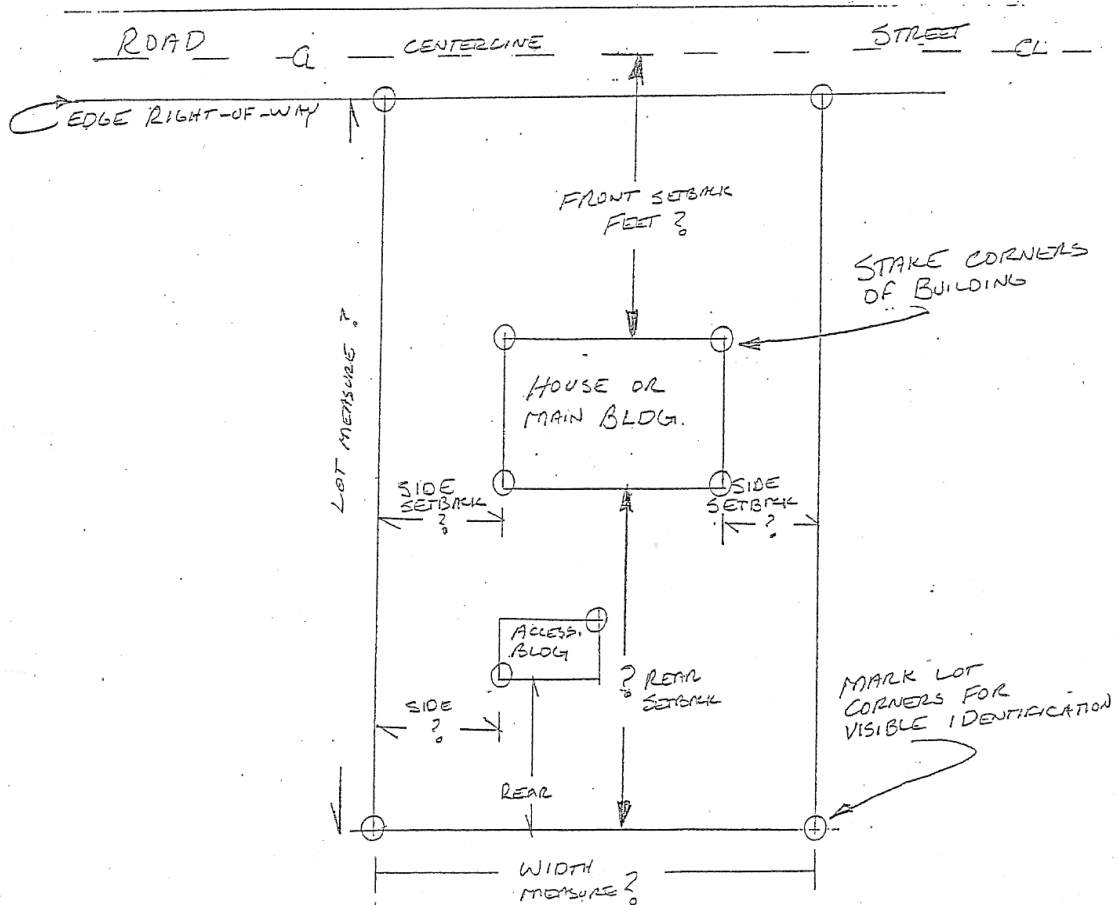 ROAD
CL
CENTERLINE
STREET
CL
EDGE RIGHT-OF-WAY
FRONT SETBACK
FEET ?
STAKE CORNERS
OF BUILDING
LOT MEASURE ?
HOUSE OR
MAIN BLDG.
SIDE
SETBACK
?
SIDE
SETBACK
?
ACCESS.
BLDG
? REAR
SETBACK
SIDE
?
MARK LOT
CORNERS FOR
VISIBLE IDENTIFICATION
REAR
WIDTH
MEASURE ?